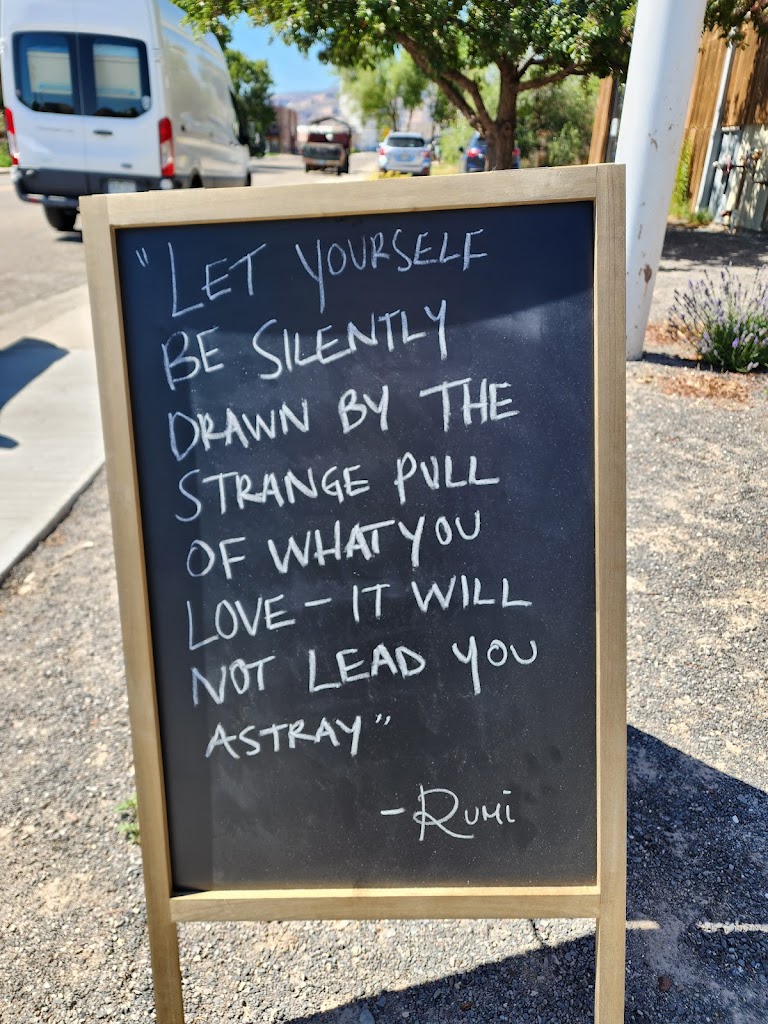 "LET YOURSELF
BE SILENTLY
DRAWN BY THE
STRANGE PULL
OF WHAT YOU
LOVE - IT WILL
NOT LEAD YOU
ASTRAY"
- RUMI